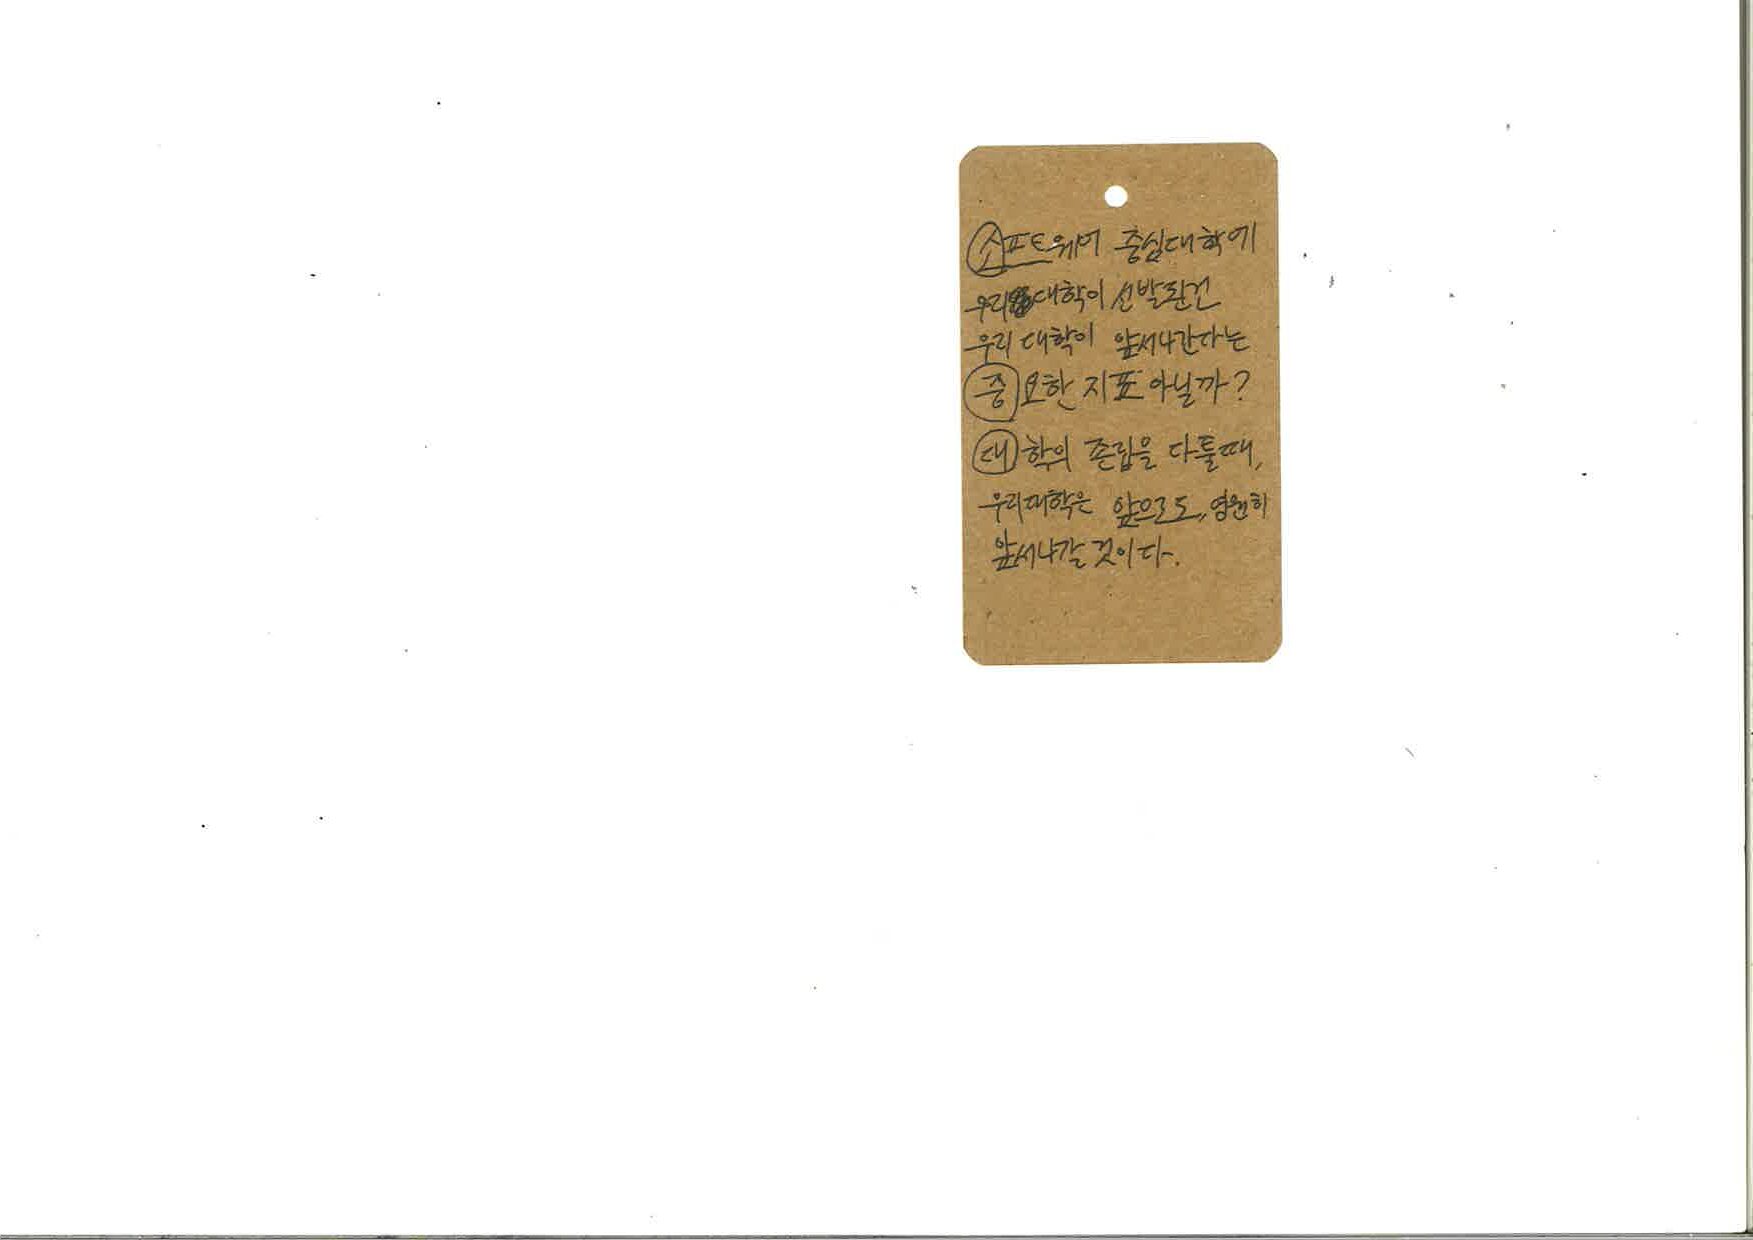 소프트웨어 중심대학에
우리 대학이 선발된건
우리 대학이 앞서나간다는
중요한 지표 아닐까?
대학의 존립을 다툴때,
우리대학은 앞으로도, 영원히
앞서나갈 것이다.